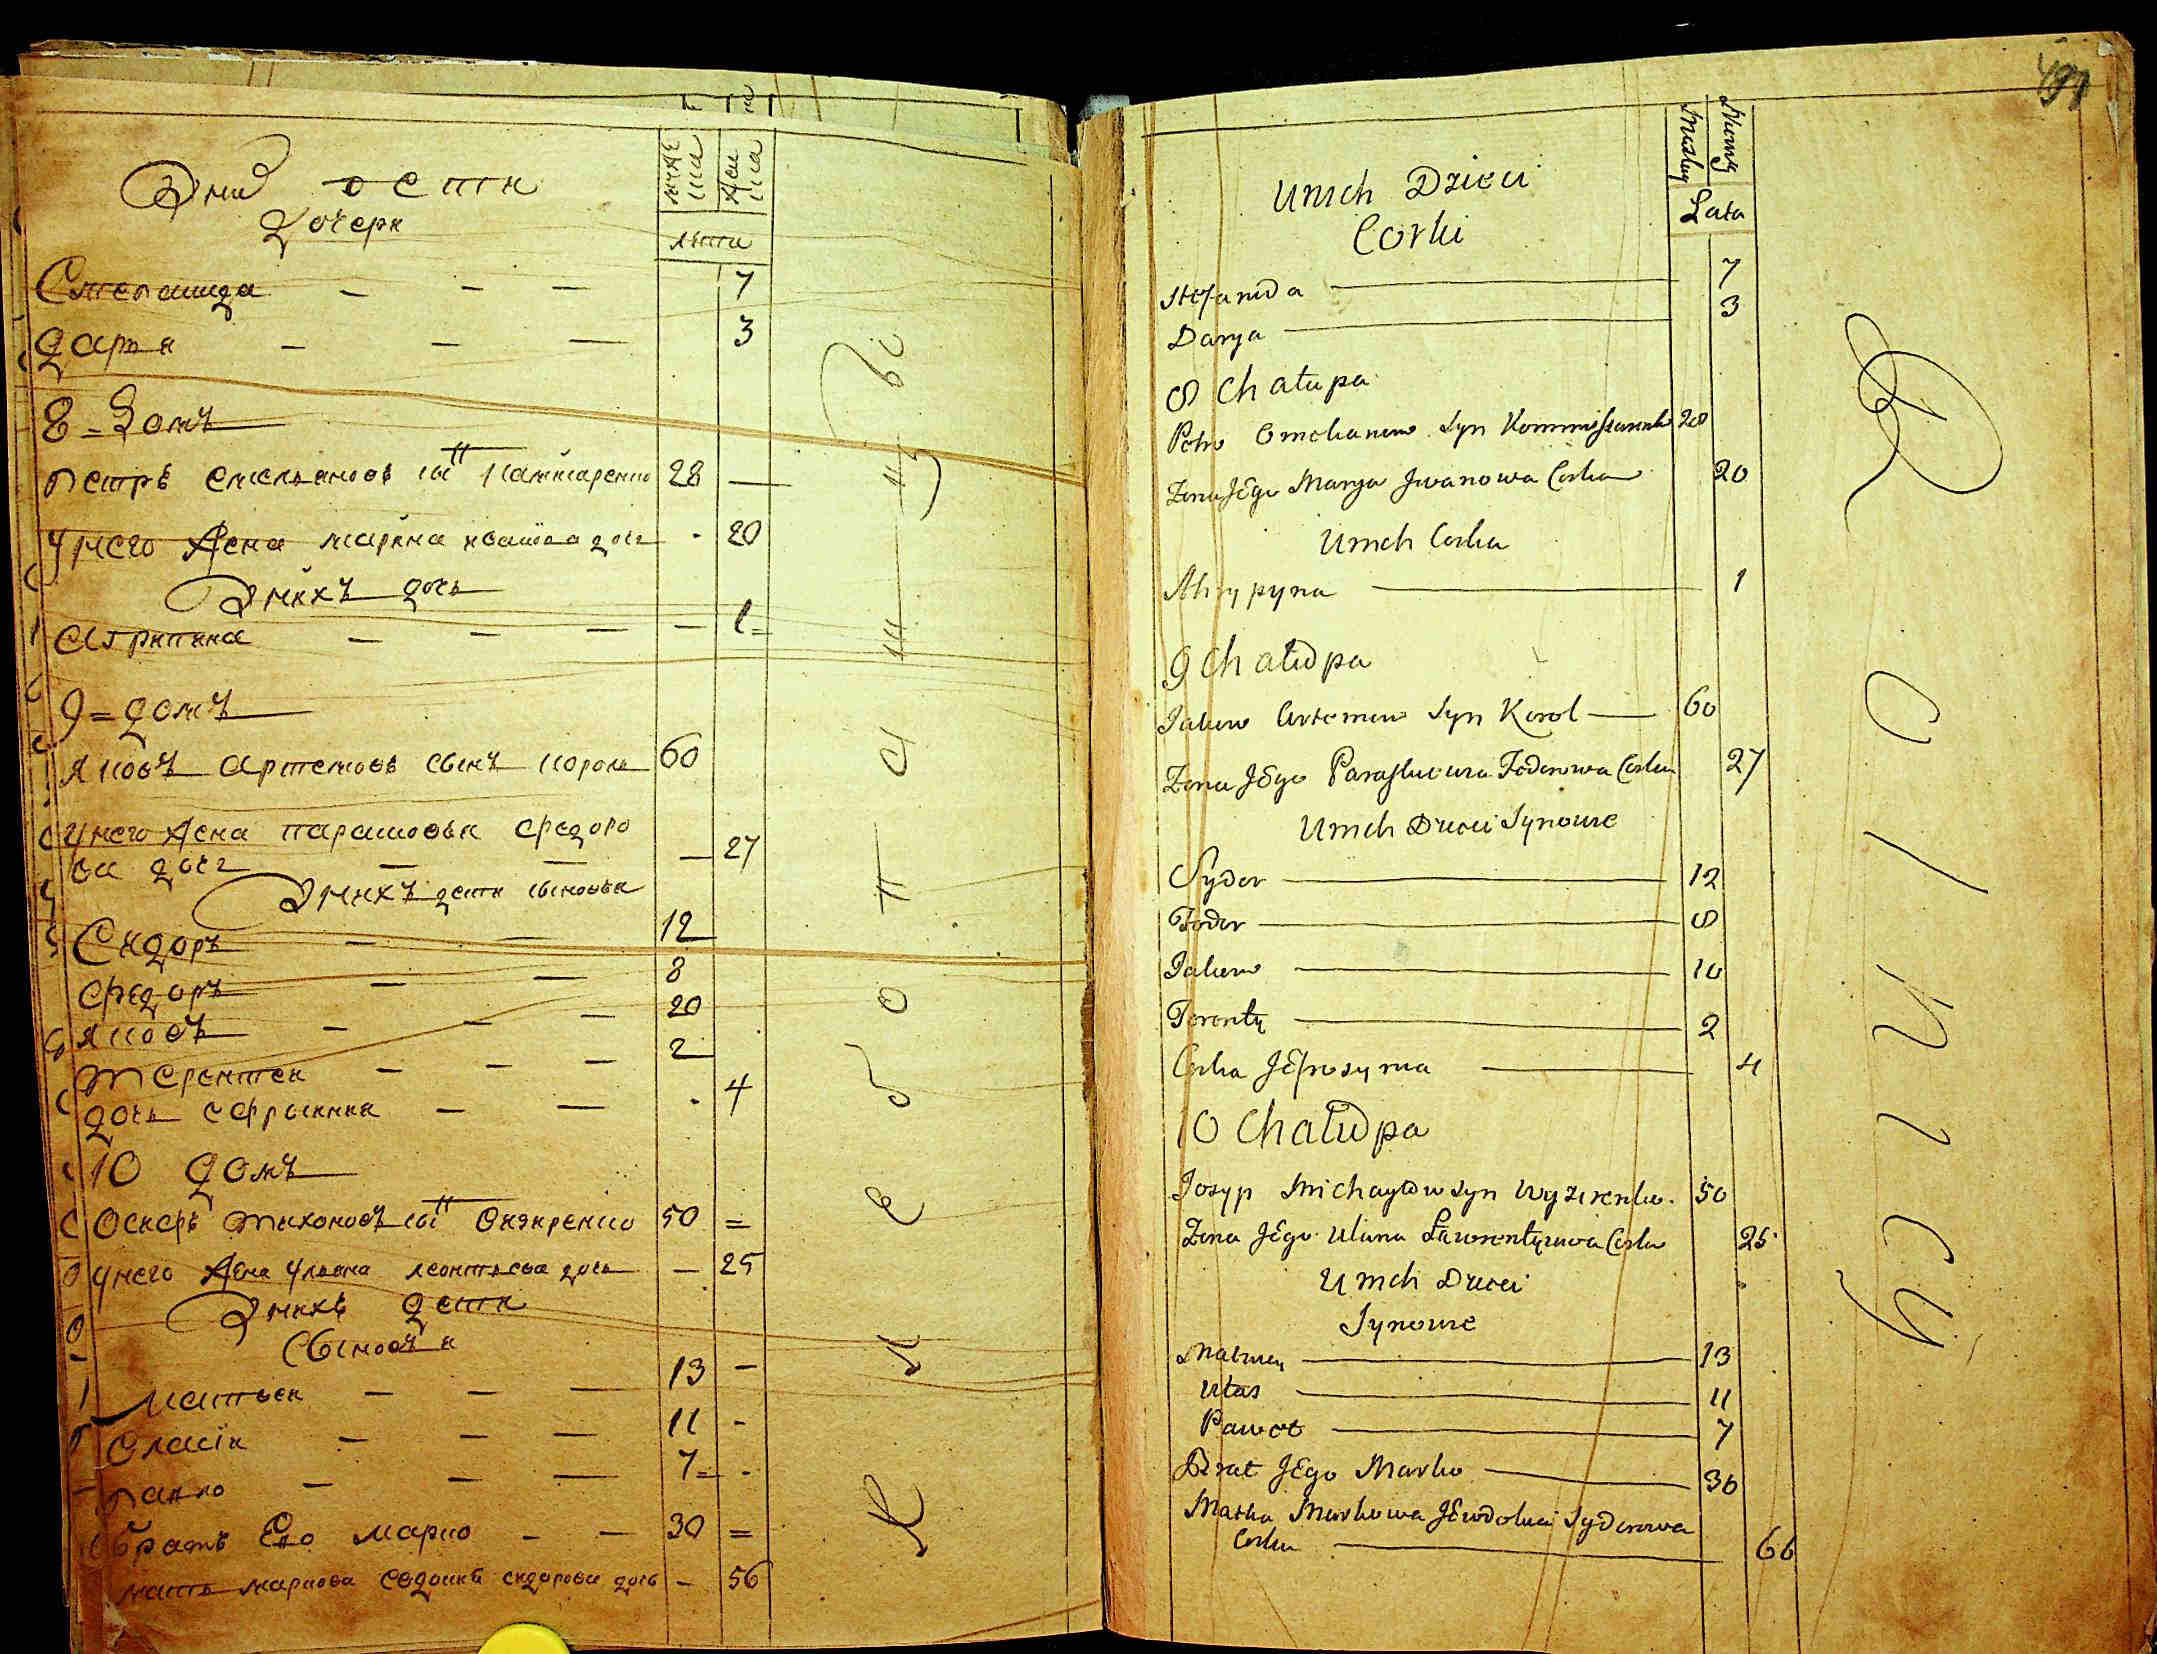 дети
дочери
муже
ска
жен
ска
лѣта
Степанида — — — 7
Дарья — — — 3
8 = Домъ
Петръ Емельяновъ сы͠нъ 28 —
У него жена Марина Иванова дочь - 20
У нихъ дочь
Агрипина — — — — 1 =
9 = домъ
Яковъ Артемовъ сынъ Король 60
У него жена Парасковья Федоро
ва дочь — — — 27
У нихъ дети сыновья
Сидоръ — — 12
Федоръ — — 8
Яковъ — — — 20
Терентей — — — 2
дочь Ефросиния — — - 4
10 домъ
Осипъ Тихоновъ сы͠нъ 50 =
У него жена Ульяна Леонтьева дочь — 25
У нихъ дети
Сыновья
Матвей — — — 13 -
Власій — — — 11 -
Павло — — — 7 = -
братъ Его Марко — — 30 =
мать Маркова Евдокия Сидорова дочь - 56
491
Unich Dzieci
Corki
Muskey
Lata
Stefanida — 7
Darya — 3
8 Chałupa
Petro Omelianow Syn 28
Żona Jego Marya Jwanowa Corka 20
Unich Corka
Ahrypyna — 1
9 Chałupa
Jakow Artemow Syn Korol — 60
Żona Jego Paraskewia Fedorowa Corka 27
Unich Dzieci Synowie
Sydor — 12
Fedor — 8
Jakow — 10
Terenty — 2
Corka Jefrosynia — 4
10 Chałupa
Josyp Michayłow Syn 50
Żona Jego Uliana Ławrentyiowa Corka 25
Unich Dzieci
Synowie
Matwey — 13
Ułas — 11
Paweł — 7
Brat Jego Marko — 30
Matka Markowa Jewdokia Sydorowa
Corka — 66